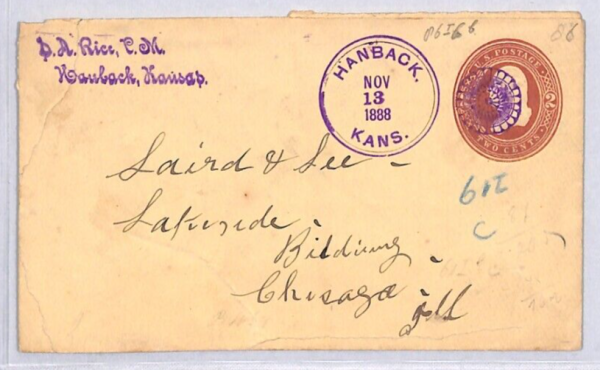 D. A. Rice, P. M.
Hanback, Kansas.
HANBACK.
NOV
13
1888
KANS.
U.S. POSTAGE
2 2
TWO CENTS
Laird & Lee -
Lakeside -
Bilding
Chicago -
Ill
219
C
86